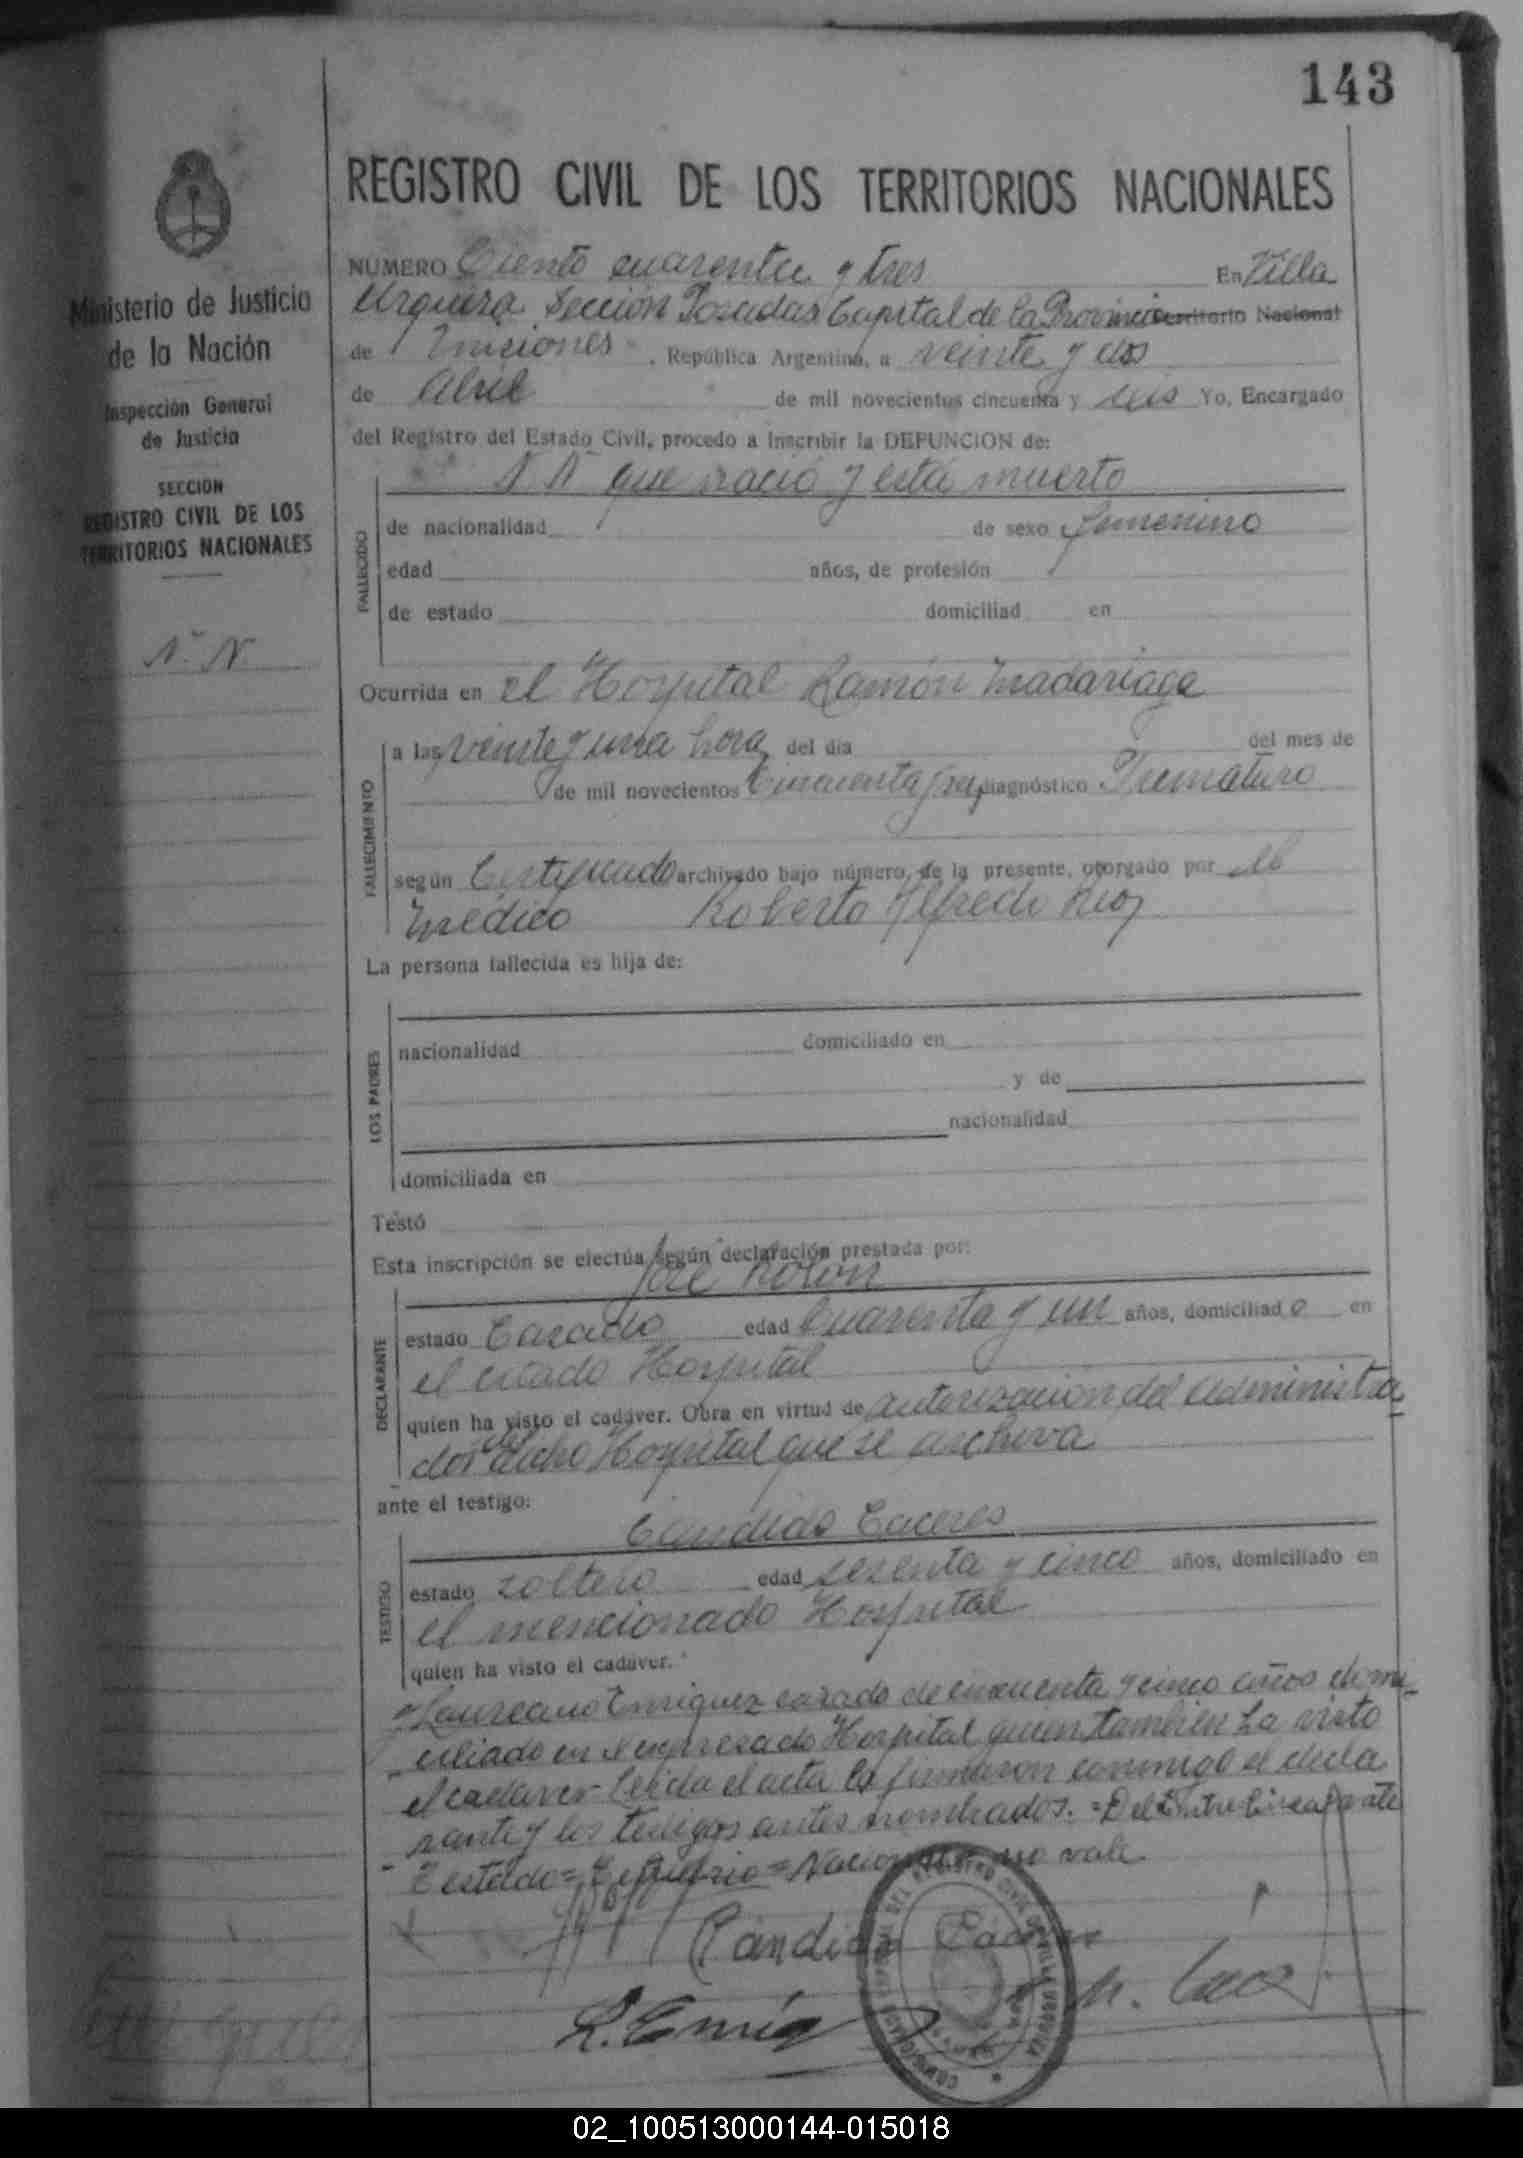 143
REGISTRO CIVIL DE LOS TERRITORIOS NACIONALES
Ministerio de Justicia
de la Nación
Inspección General
de Justicia
SECCION
REGISTRO CIVIL DE LOS
TERRITORIOS NACIONALES
N. N.
NUMERO Ciento cuarenta y tres En Villa
Urquiza Sección Posadas Capital de la Provincia Territorio Nacional
de Misiones, República Argentina, a veinte y dos
de Abril de mil novecientos cincuenta y seis Yo, Encargado
del Registro del Estado Civil, procedo a inscribir la DEFUNCION de:
N N que nació y está muerto
FALLECIDO
de nacionalidad de sexo femenino
edad años, de profesión
de estado domiciliad en
Ocurrida en el Hospital Ramón Madariaga
FALLECIMIENTO
a las veinte y una hora del día del mes de
de mil novecientos cincuenta y seis, diagnóstico Prematuro
según Certificado archivado bajo número, de la presente, otorgado por el
médico Roberto Alfredo Rios
La persona fallecida es hija de:
LOS PADRES
nacionalidad domiciliado en
y de
nacionalidad
domiciliada en
Testó
Esta inscripción se efectúa según declaración prestada por:
José Rolón
DECLARANTE
estado Casado edad cuarenta y un años, domiciliado en
el citado Hospital
quien ha visto el cadáver. Obra en virtud de autorización del administra
dor de dicho Hospital que se archiva
ante el testigo:
Cándido Caceres
TESTIGO
estado soltero edad sesenta y cinco años, domiciliado en
el mencionado Hospital
quien ha visto el cadáver.
y Laureano Enriquez casado de cincuenta y cinco años domi
ciliado en el expresado Hospital quien también ha visto
el cadaver Leida el acta la firmaron conmigo el decla
rante y los testigos antes nombrados. = De Entre linea vale
Testado = Territorio = Nacional = no vale
Candido Cáceres
L. Enriq
02_100513000144-015018